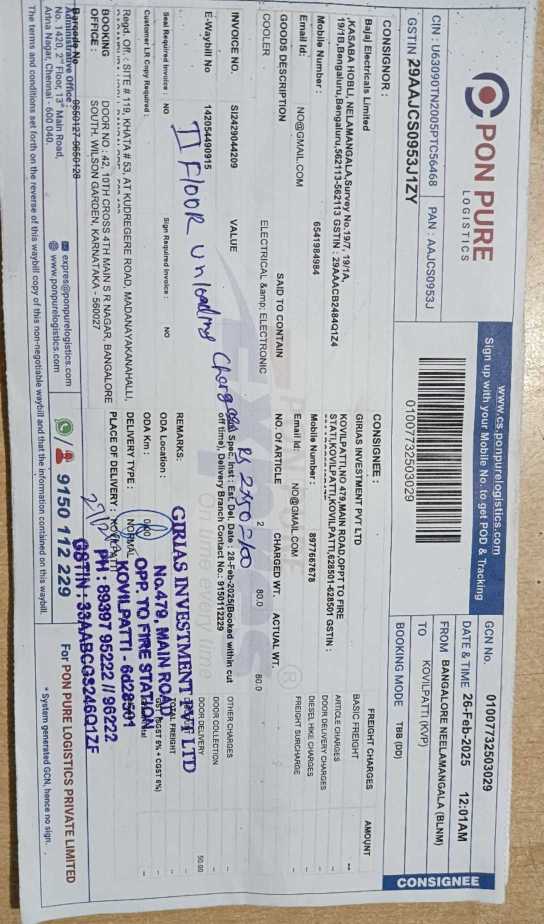 PON PURE
LOGISTICS
CIN : U63090TN2005PTC56468
PAN : AAJCS0953J
GSTIN 29AAJCS0953J1ZY
www.cs.ponpurelogistics.com
Sign up with your Mobile No. to get POD & Tracking
01007732503029
GCN No. 01007732503029
DATE & TIME 26-Feb-2025 12:01AM
FROM BANGALORE NEELAMANGALA (BLNM)
TO KOVILPATTI (KVP)
BOOKING MODE TBB (DD)
CONSIGNEE
CONSIGNOR :
Bajaj Electricals Limited
,KASABA HOBLI, NELAMANGALA,Survey No.19/7, 19/1A,
19/1B,Bengaluru,Bengaluru,562113-562113 GSTIN : 29AAACB2484Q1Z4
Mobile Number : 6541984984
Email Id: NO@GMAIL.COM
CONSIGNEE :
GIRIAS INVESTMENT PVT LTD
KOVILPATTI,NO 479,MAIN ROAD,OPPT TO FIRE
STATI,KOVILPATTI,KOVILPATTI,628501-628501 GSTIN :
Mobile Number : 8977687678
Email Id: NO@GMAIL.COM
FREIGHT CHARGES AMOUNT
BASIC FREIGHT --
ARTICLE CHARGES
DOOR DELIVERY CHARGES
DIESEL HIKE CHARGES
FREIGHT SURCHARGE
GOODS DESCRIPTION SAID TO CONTAIN NO. OF ARTICLE CHARGED WT. ACTUAL WT.
COOLER ELECTRICAL &amp; ELECTRONIC 2 80.0 80.0
OTHER CHARGES
DOOR COLLECTION
DOOR DELIVERY 50.00
TOTAL FREIGHT
INVOICE NO. SI2429044209 VALUE
E-Waybill No 142054490915
II Floor unloading Charges Rs 250-00
Spec. Inst : Est. Del. Date : 28-Feb-2025(Booked within cut
off time), Delivery Branch Contact No.: 9150112229
Seal Required Invoice : NO Sign Required Invoice : NO
Customer IB Copy Required :
REMARKS:
ODA Location :
ODA Km : 0.00
DELIVERY TYPE : NORMAL
PLACE OF DELIVERY : KOVILPATTI
GIRIAS INVESTMENT PVT LTD
No.479, MAIN ROAD
OPP. TO FIRE STATION
KOVILPATTI - 628501
PH : 89397 95222 // 96222
GSTIN : 33AABCG9246Q1ZF
Regd. Off : SITE # 119, KHATA # 53, AT KUDREGERE ROAD, MADANAYAKANAHALLI,
BOOKING OFFICE : DOOR NO : 42, 10TH CROSS 4TH MAIN S R NAGAR, BANGALORE
SOUTH, WILSON GARDEN, KARNATAKA - 560027
Barcode No 9650127-9650128
Administrative Office :
No. 1420, 2nd Floor, 13th Main Road,
Anna Nagar, Chennai - 600 040.
expres@ponpurelogistics.com
www.ponpurelogistics.com
9150 112 229
For PON PURE LOGISTICS PRIVATE LIMITED
The terms and conditions set forth on the reverse of this waybill copy of this non-negotiable waybill and that the information contained on this waybill.
* System generated GCN, hence no sign.